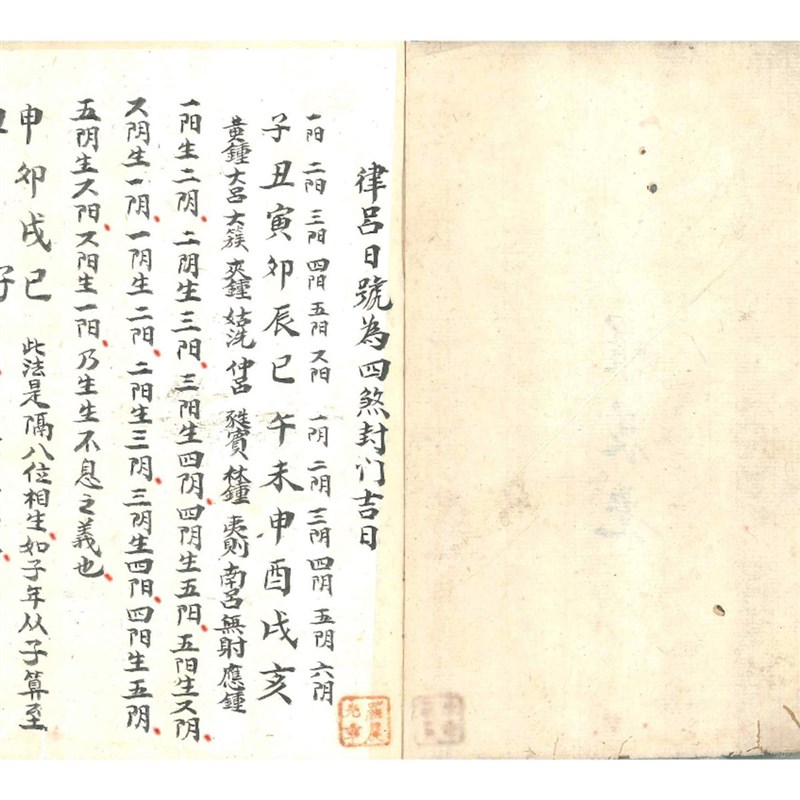 律呂日號為四煞封门吉日
一阳 二阳 三阳 四阳 五阳 六阳 一阴 二阴 三阴 四阴 五阴 六阴
子 丑 寅 卯 辰 巳 午 未 申 酉 戌 亥
黃鍾 大呂 大簇 夾鍾 姑洗 仲呂 蕤賓 林鍾 夷則 南呂 無射 應鍾
一阳生二阴 二阴生三阳 三阳生四阴 四阴生五阳 五阳生六阴
六阴生一阴 一阴生二阳 二阳生三阴 三阴生四阳 四阳生五阴
五阴生六阳 六阳生一阳 乃生生不息之義也
申卯戌巳 此法是隔八位相生如子年从子算至